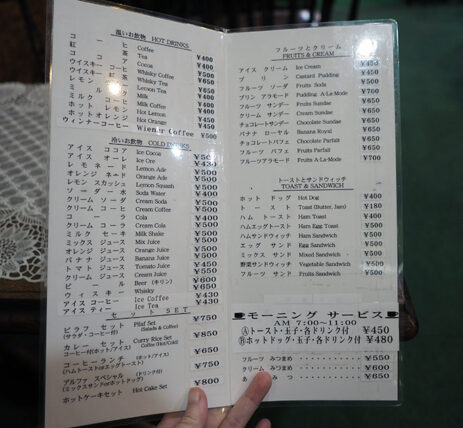 温いお飲物 HOT DRINKS
コーヒー Coffee ¥400
紅茶 Tea ¥400
ココア Cocoa ¥400
ウイスキーコーヒー Whisky Coffee ¥500
ウイスキー紅茶 Whisky Tea
レモンティー Lemon Tea
ミルク Milk
ミルクコーヒー Milk Coffee ¥400
ホットレモン Hot Lemon ¥400
ホットオレンジ Hot Orange ¥450
ウィンナーコーヒー Wienner Coffee ¥500
冷いお飲物 COLD DRINKS
アイスココア Ice Cocoa
アイスオーレ Ice Ore
レモネード Lemon Ade ¥430
オレンジネード Orange Ade ¥500
レモンスカッシュ Lemon Squash ¥500
ソーダ水 Soda Water ¥400
クリームソーダ Cream Soda ¥500
クリームコーヒー Cream Coffee ¥500
コーラ Cola ¥400
クリームコーラ Cream Cola ¥500
ミルクセーキ Milk Shake ¥500
ミックスジュース Mix Juice ¥500
オレンジジュース Orange Juice ¥500
バナナジュース Banana Juice ¥500
トマトジュース Tomato Juice ¥450
冷ミルク Ice Milk
ビール Beer (キリン) ¥600
ウィスキー Whisky ¥650
アイスコーヒー Ice Coffee ¥430
アイスティー Ice Tea ¥430
セット SET
ピラフセット Pilaf Set ¥750
(サラダ・コーヒー付) (Salada & Coffee)
カレーセット Curry Rice Set ¥850
コーヒー付(ホット/アイス) Coffee (Hot/Cold)
コーヒーランチ (ホット/アイス) ¥650
(ハムトーストorエッグトースト)
アルファスペシャル (ドリンク付) ¥750
(ミックスサンドorホットドッグ)
ホットケーキセット Hot Cake Set ¥800
フルーツとクリーム
FRUITS & CREAM
アイスクリーム Ice Cream ¥450
プリン Custard Pudding ¥450
フルーツソーダ Fruits Soda ¥500
プリンアラモード Pudding A-La-Mode ¥700
フルーツサンデー Fruits Sundae ¥650
クリームサンデー Cream Sundae ¥650
チョコレートサンデー Chocolate Sundae ¥650
バナナローヤル Banana Royal ¥650
チョコレートパフェ Chocolate Parfait ¥650
フルーツパフェ Fruits Parfait ¥650
フルーツアラモード Fruits A-La-Mode ¥700
トーストとサンドウィッチ
TOAST & SANDWICH
ホットドッグ Hot Dog ¥400
トースト Toast (Butter, Jam) ¥180
ハムトースト Ham Toast ¥400
ハムエッグトースト Ham Egg Toast ¥500
ハムサンドウィッチ Ham Sandwich ¥500
エッグサンド Egg Sandwich ¥500
ミックスサンド Mixed Sandwich ¥500
野菜サンドウィッチ Vegetable Sandwich ¥500
フルーツサンド Fruits Sandwich ¥500
モーニング サービス
AM 7:00~11:00
Ⓐトースト・玉子・各ドリンク付 ¥450
Ⓑホットドッグ・玉子・各ドリンク付 ¥480
フルーツみつまめ ¥550
クリームみつまめ ¥600
あんみつ ¥650